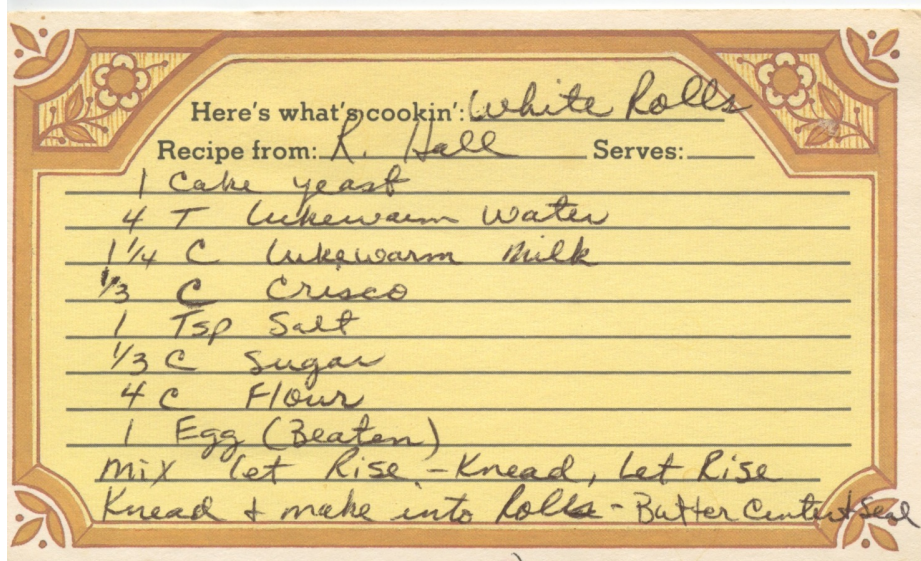 Here's what's cookin': White Rolls
Recipe from: R. Hall Serves:
1 Cake yeast
4 T lukewarm water
1 1/4 C lukewarm milk
1/3 C Crisco
1 Tsp Salt
1/3 C Sugar
4 C Flour
1 Egg (Beaten)
mix let Rise - Knead, Let Rise
Knead & make into Rolls - Butter Center & Seal